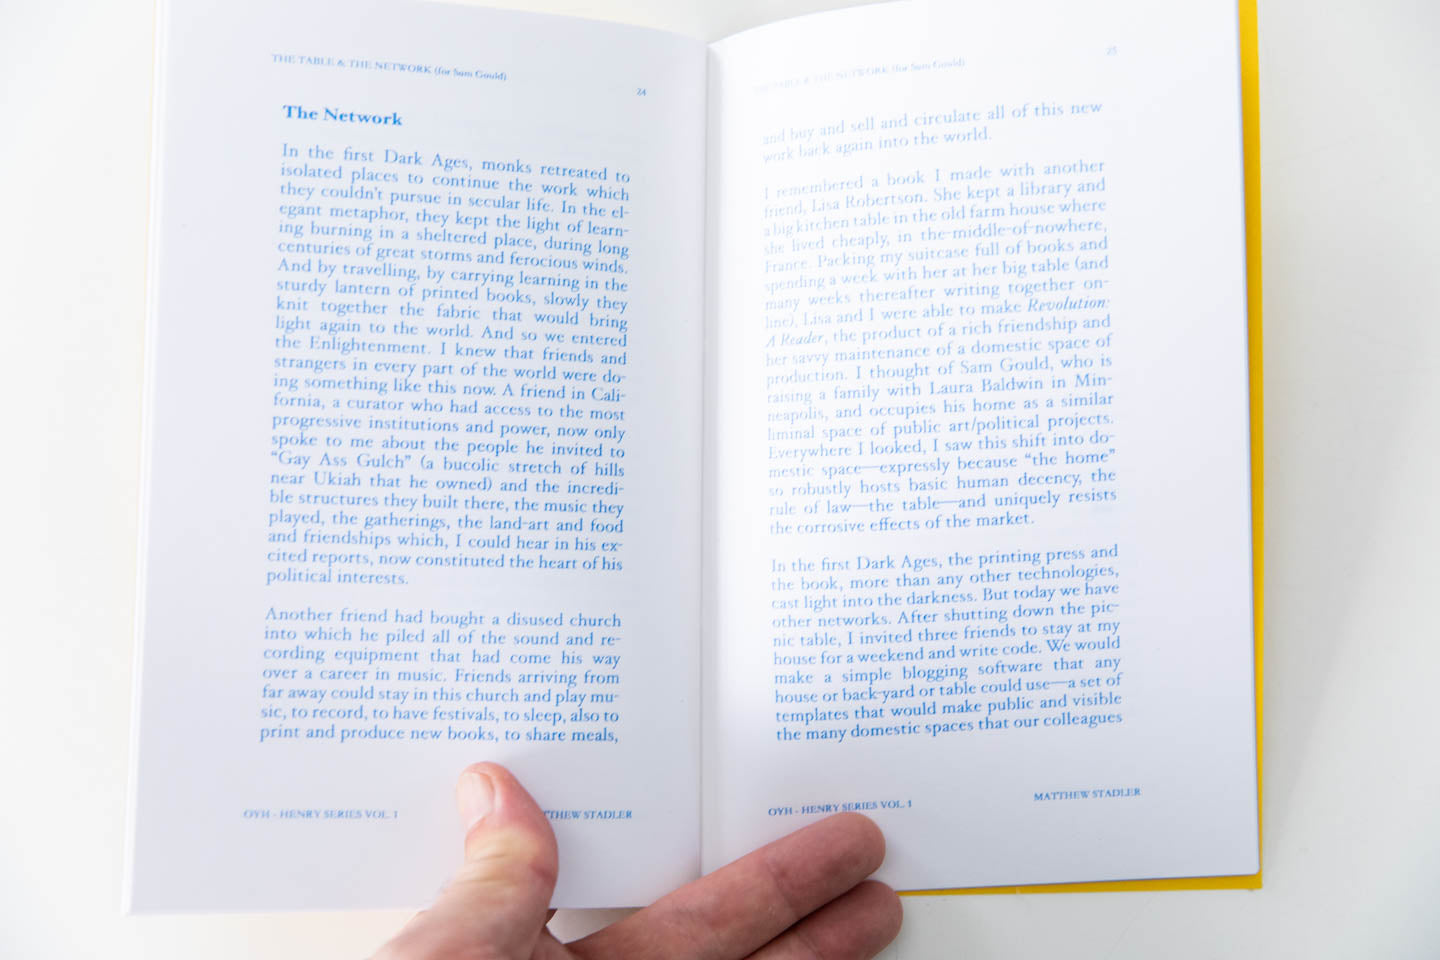 THE TABLE & THE NETWORK (for Sam Gould)
24
The Network
In the first Dark Ages, monks retreated to
isolated places to continue the work which
they couldn't pursue in secular life. In the el-
egant metaphor, they kept the light of learn-
ing burning in a sheltered place, during long
centuries of great storms and ferocious winds.
And by travelling, by carrying learning in the
sturdy lantern of printed books, slowly they
knit together the fabric that would bring
light again to the world. And so we entered
the Enlightenment. I knew that friends and
strangers in every part of the world were do-
ing something like this now. A friend in Cali-
fornia, a curator who had access to the most
progressive institutions and power, now only
spoke to me about the people he invited to
“Gay Ass Gulch” (a bucolic stretch of hills
near Ukiah that he owned) and the incredi-
ble structures they built there, the music they
played, the gatherings, the land-art and food
and friendships which, I could hear in his ex-
cited reports, now constituted the heart of his
political interests.
Another friend had bought a disused church
into which he piled all of the sound and re-
cording equipment that had come his way
over a career in music. Friends arriving from
far away could stay in this church and play mu-
sic, to record, to have festivals, to sleep, also to
print and produce new books, to share meals,
OYH - HENRY SERIES VOL. 1
THEW STADLER
THE TABLE & THE NETWORK (for Sam Gould)
25
and buy and sell and circulate all of this new
work back again into the world.
I remembered a book I made with another
friend, Lisa Robertson. She kept a library and
a big kitchen table in the old farm house where
she lived cheaply, in the-middle-of-nowhere,
France. Packing my suitcase full of books and
spending a week with her at her big table (and
many weeks thereafter writing together on-
line), Lisa and I were able to make Revolution:
A Reader, the product of a rich friendship and
her savvy maintenance of a domestic space of
production. I thought of Sam Gould, who is
raising a family with Laura Baldwin in Min-
neapolis, and occupies his home as a similar
liminal space of public art/political projects.
Everywhere I looked, I saw this shift into do-
mestic space—expressly because “the home”
so robustly hosts basic human decency, the
rule of law—the table—and uniquely resists
the corrosive effects of the market.
In the first Dark Ages, the printing press and
the book, more than any other technologies,
cast light into the darkness. But today we have
other networks. After shutting down the pic-
nic table, I invited three friends to stay at my
house for a weekend and write code. We would
make a simple blogging software that any
house or back-yard or table could use—a set of
templates that would make public and visible
the many domestic spaces that our colleagues
OYH - HENRY SERIES VOL. 1
MATTHEW STADLER